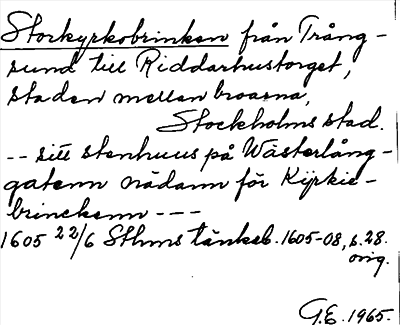 Storkyrkobrinken från Trång-
sund till Riddarhustorget,
staden mellan broarna,
Stockholms stad.
-- sitt stenhuus på Wästerlång-
gatenn nädann för Kijrkie-
brinckenn ---
1605 22/6 Sthms tänkeb. 1605-08, s. 28.
orig.
G.E. 1965.